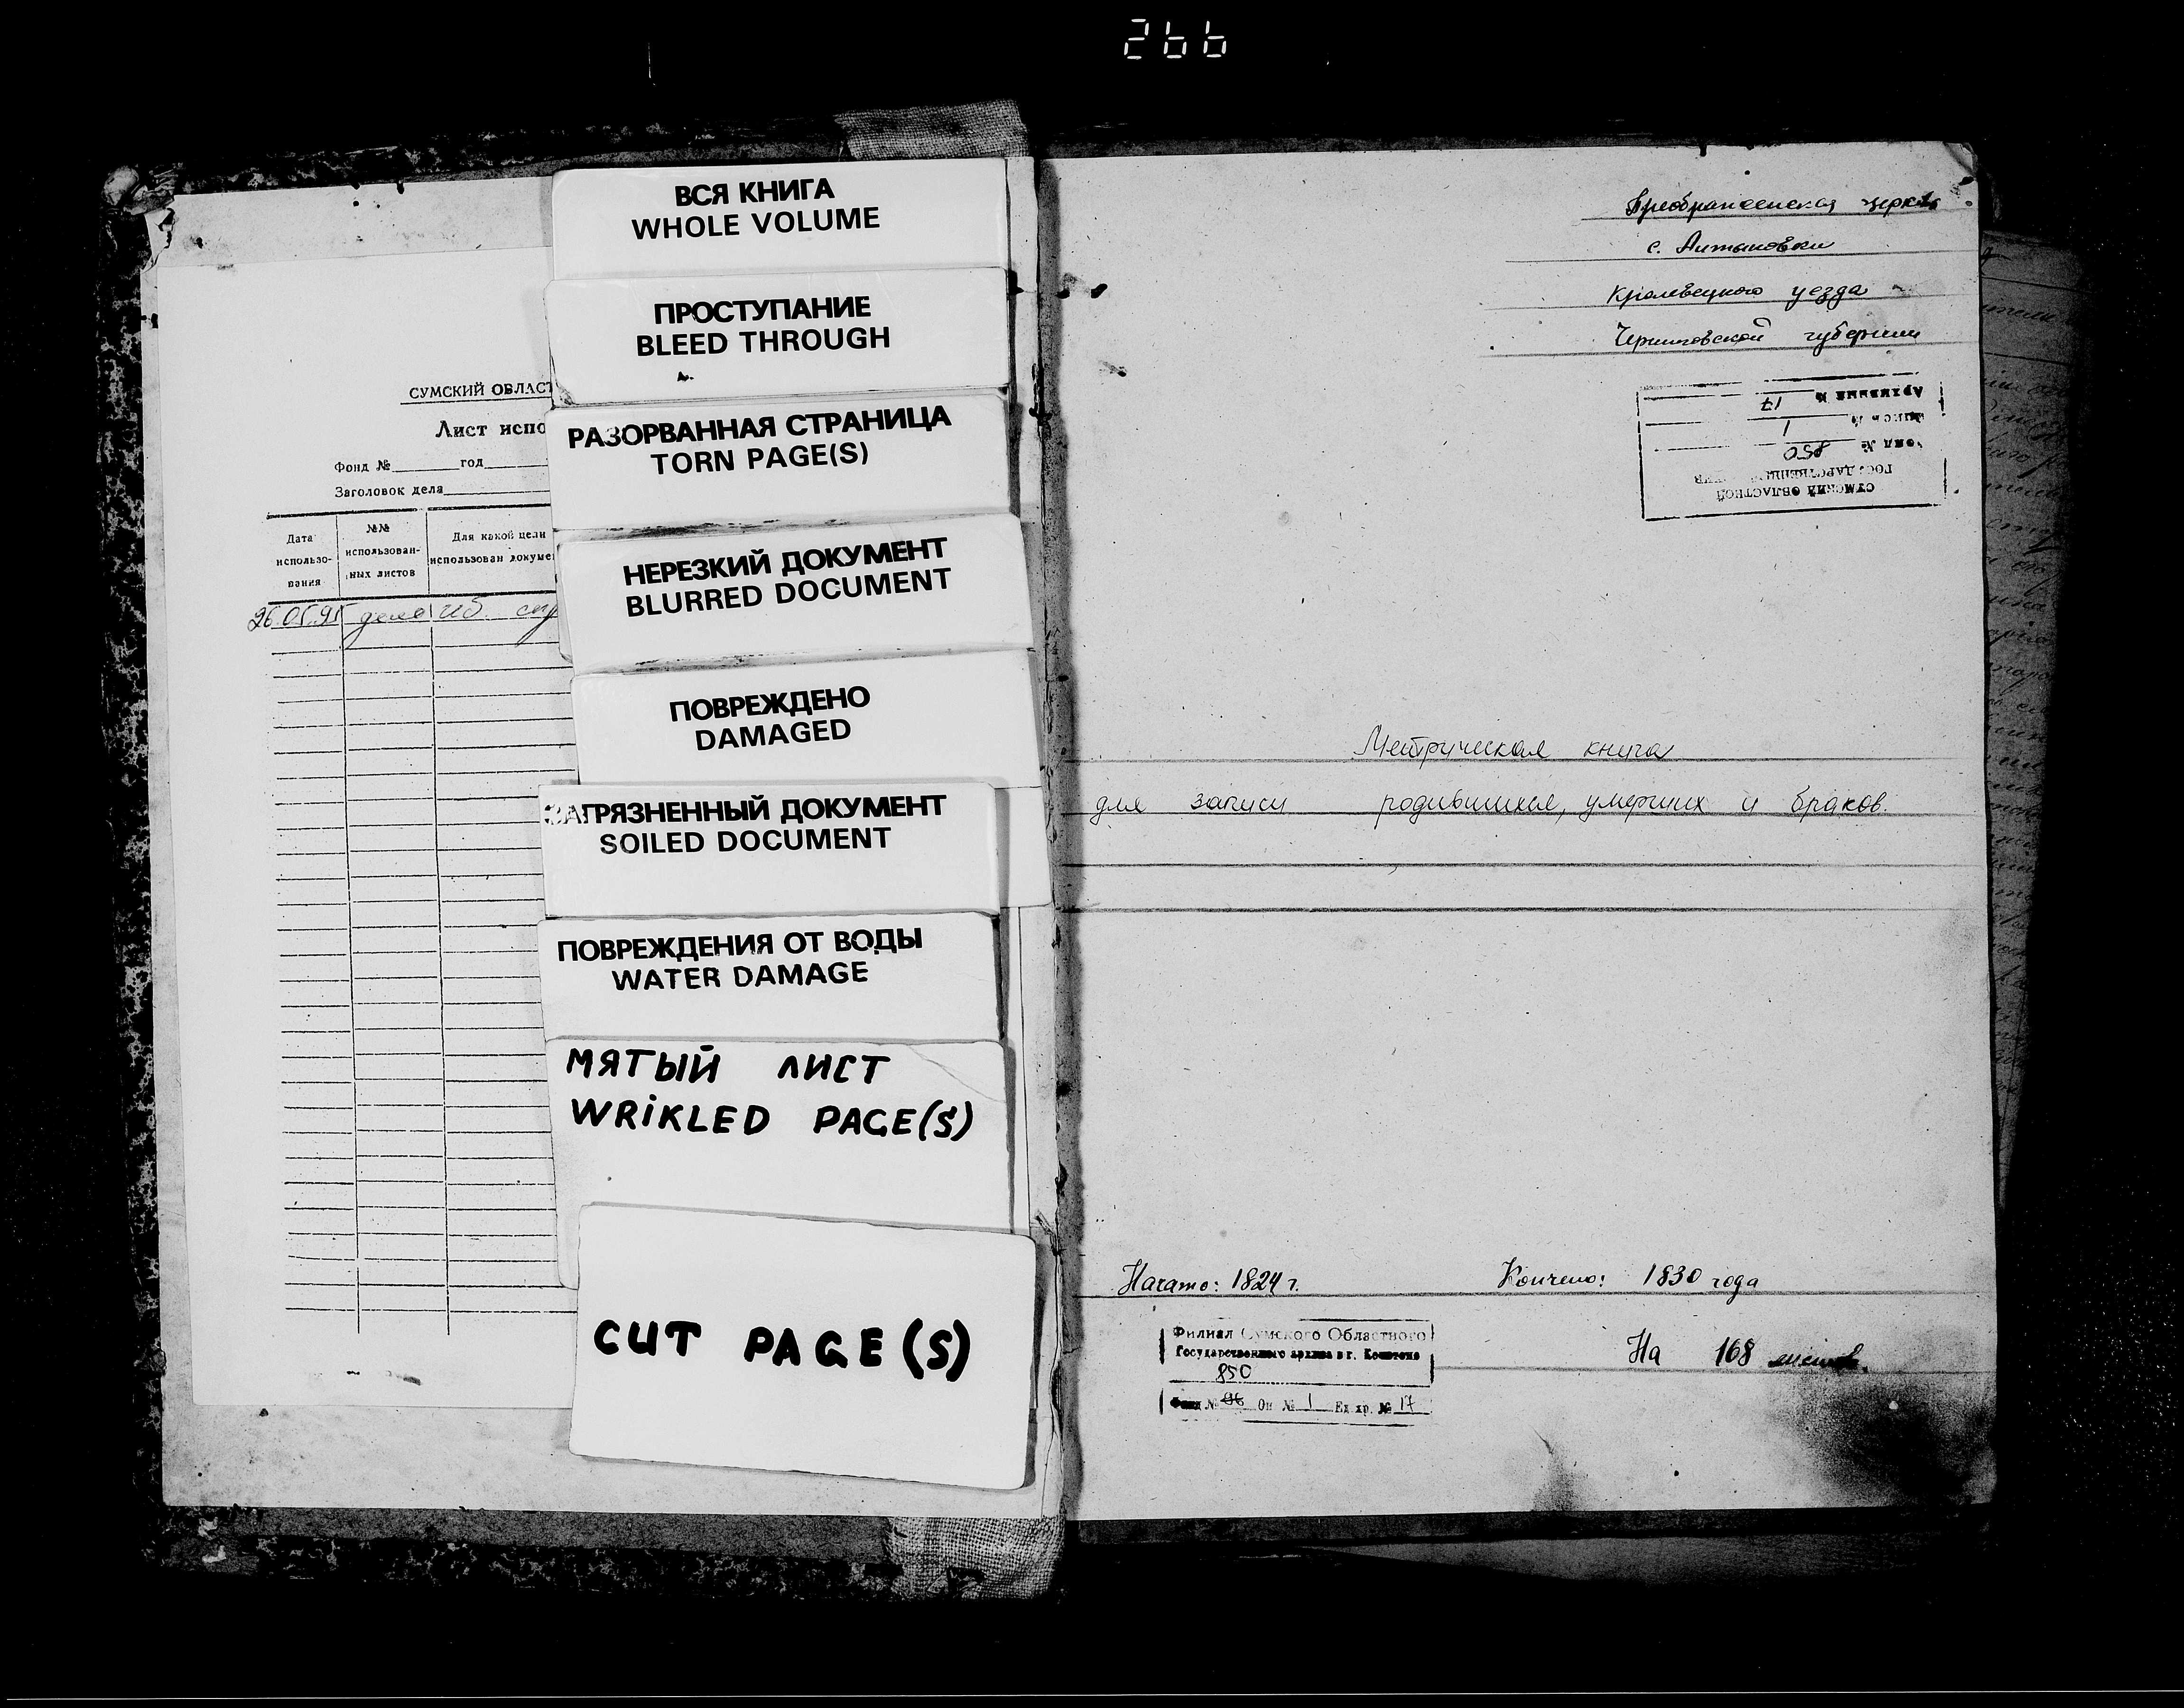 266
СУМСКИЙ ОБЛАСТ
Лист испо
Фонд № год
Заголовок дела
Дата использо-вания
№№ использован-ных листов
Для какой цели использован докуме
26.05.95 дело
ВСЯ КНИГА
WHOLE VOLUME
ПРОСТУПАНИЕ
BLEED THROUGH
РАЗОРВАННАЯ СТРАНИЦА
TORN PAGE(S)
НЕРЕЗКИЙ ДОКУМЕНТ
BLURRED DOCUMENT
ПОВРЕЖДЕНО
DAMAGED
ЗАГРЯЗНЕННЫЙ ДОКУМЕНТ
SOILED DOCUMENT
ПОВРЕЖДЕНИЯ ОТ ВОДЫ
WATER DAMAGE
МЯТЫЙ ЛИСТ
WRIKLED PAGE(S)
CUT PAGE(S)
Преображенская церковь
с. Алтыновки
Кролевецкого уезда
Черниговской губернии
СУМСКИЙ ОБЛАСТНОЙ
ГОСУДАРСТВЕННЫЙ АРХИВ
Фонд № 850
Опись № 1
Архивный № 17
Метрическая книга
для записи родившихся, умерших и браков.
Начато: 1824 г. Кончено: 1830 года
На 168 листов.
Филиал Сумского Областного
Государственного архива в г. Конотопе
850
Фонд № Оп № 1 Ед хр. № 17